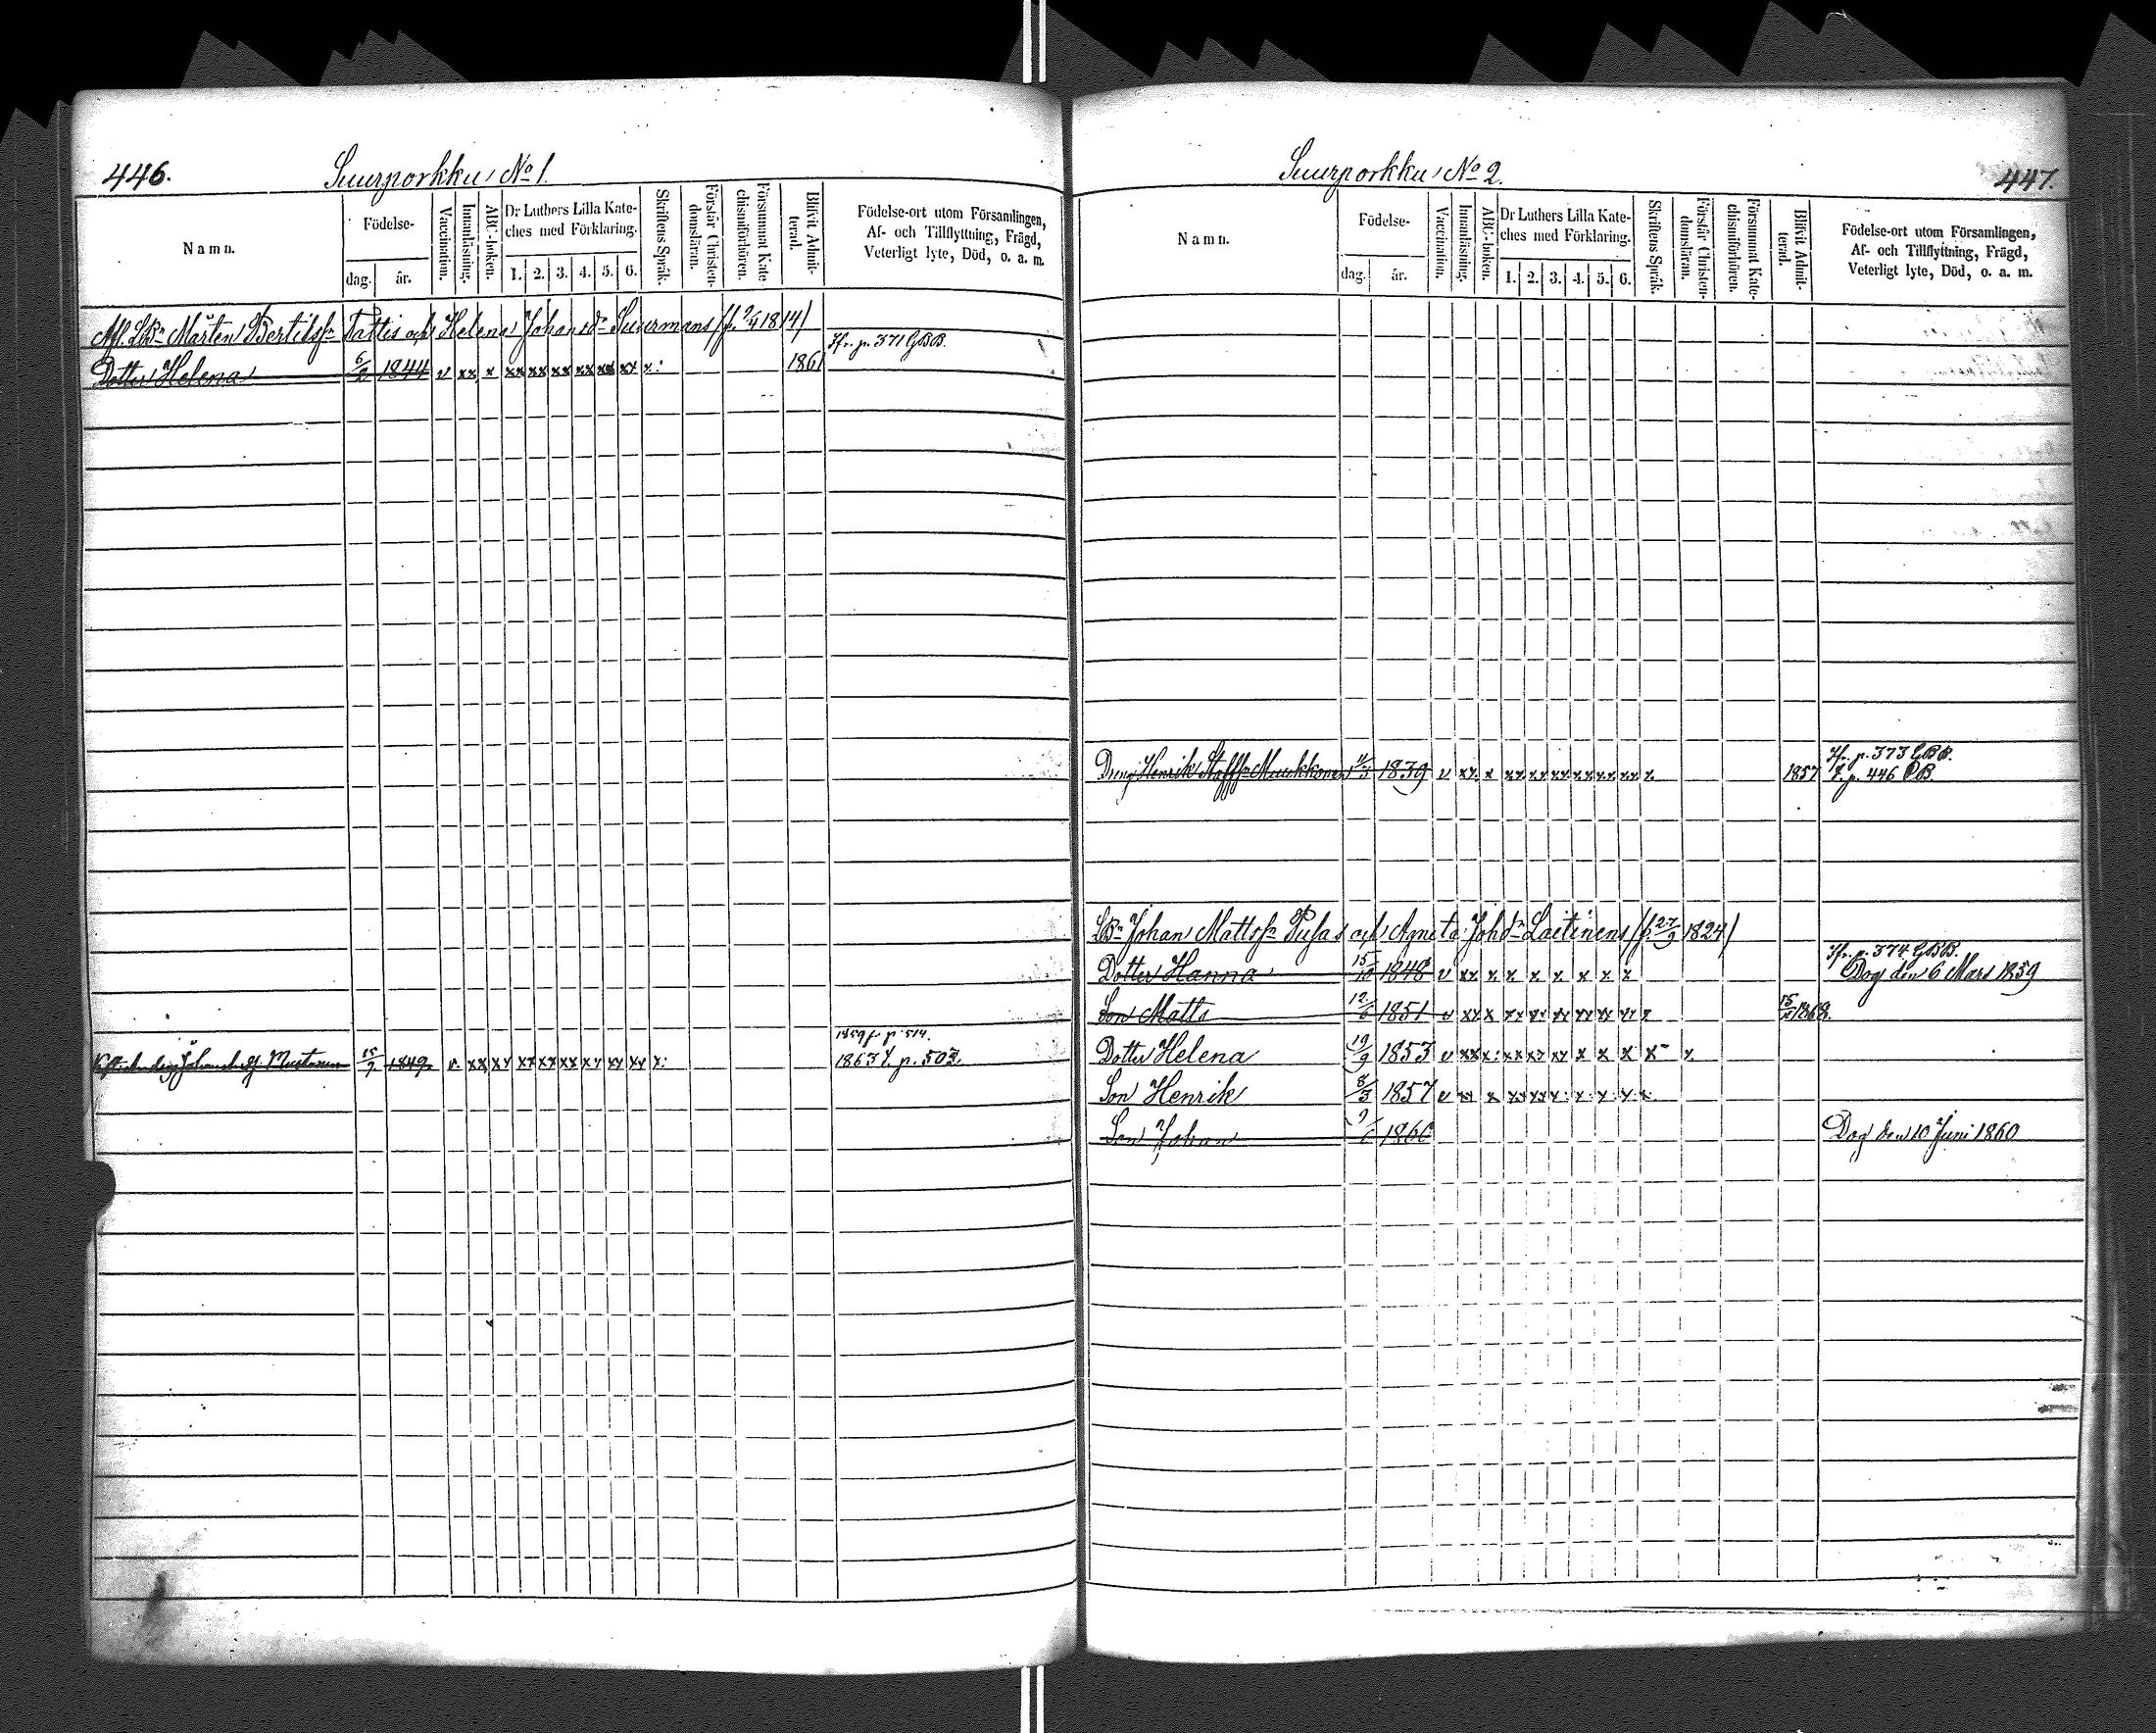 446.
Suurporkku No 1.
Namn.
Födelse-
dag.
år.
Vaccination.
Innanläsning.
ABC-boken.
Dr Luthers Lilla Kate-
ches med Förklaring.
1. 2. 3. 4. 5. 6.
Skriftens Språk.
Förstår Christen-
domsläran.
Försummat Kate-
chismiförhören.
Blifvit Admit-
terad.
Födelse-ort utom Församlingen,
Af- och Tillflyttning, Frägd,
Veterligt lyte, Död, o. a. m.
Afl. LBn Mårten Bertilsfn Tattis och Helena Johansdr Suurmans (f. 2/4 1814)
Jfr. p. 371 GBB.
Dotter Helena 1844 v xx x xx xx xx xx xx xx x: 1861
1859 fr. p. 514.
Johan Mustonen 15/7 1849 v. xx xx xx xx xx xx xx xx x: 1863 f. p. 503.
Suurporkku No 2.
447.
Namn.
Födelse-
dag.
år.
Vaccination.
Innanläsning.
ABC-boken.
Dr Luthers Lilla Kate-
ches med Förklaring.
1. 2. 3. 4. 5. 6.
Skriftens Språk.
Förstår Christen-
domsläran.
Försummat Kate-
chismiförhören.
Blifvit Admit-
terad.
Födelse-ort utom Församlingen,
Af- och Tillflyttning, Frägd,
Veterligt lyte, Död, o. a. m.
Jfr. p. 373 GBB.
Dreng Henrik Staffsn Muukkonen 1839 v xx x xx xx xx xx xx xx x 1857 f. p. 446 BB.
LBn Johan Mattsfn Pusa och Agneta Johdr Laitinens (f. 27/9 1824)
Jfr. p. 374 GBB.
Dotter Hanna 15/10 1848 v xx x x x x x x x Dog den 6 Mars 1859
Son Matts 12/6 1851 v xx x xx xx xx xx xx xx x 1868.
Dotter Helena 19/9 1853 v xx x: xx xx xx x x x x- x
Son Henrik 8/3 1857 v xx x xx xx x x x x x
Son Johan 1860 Dog den 10 Juni 1860